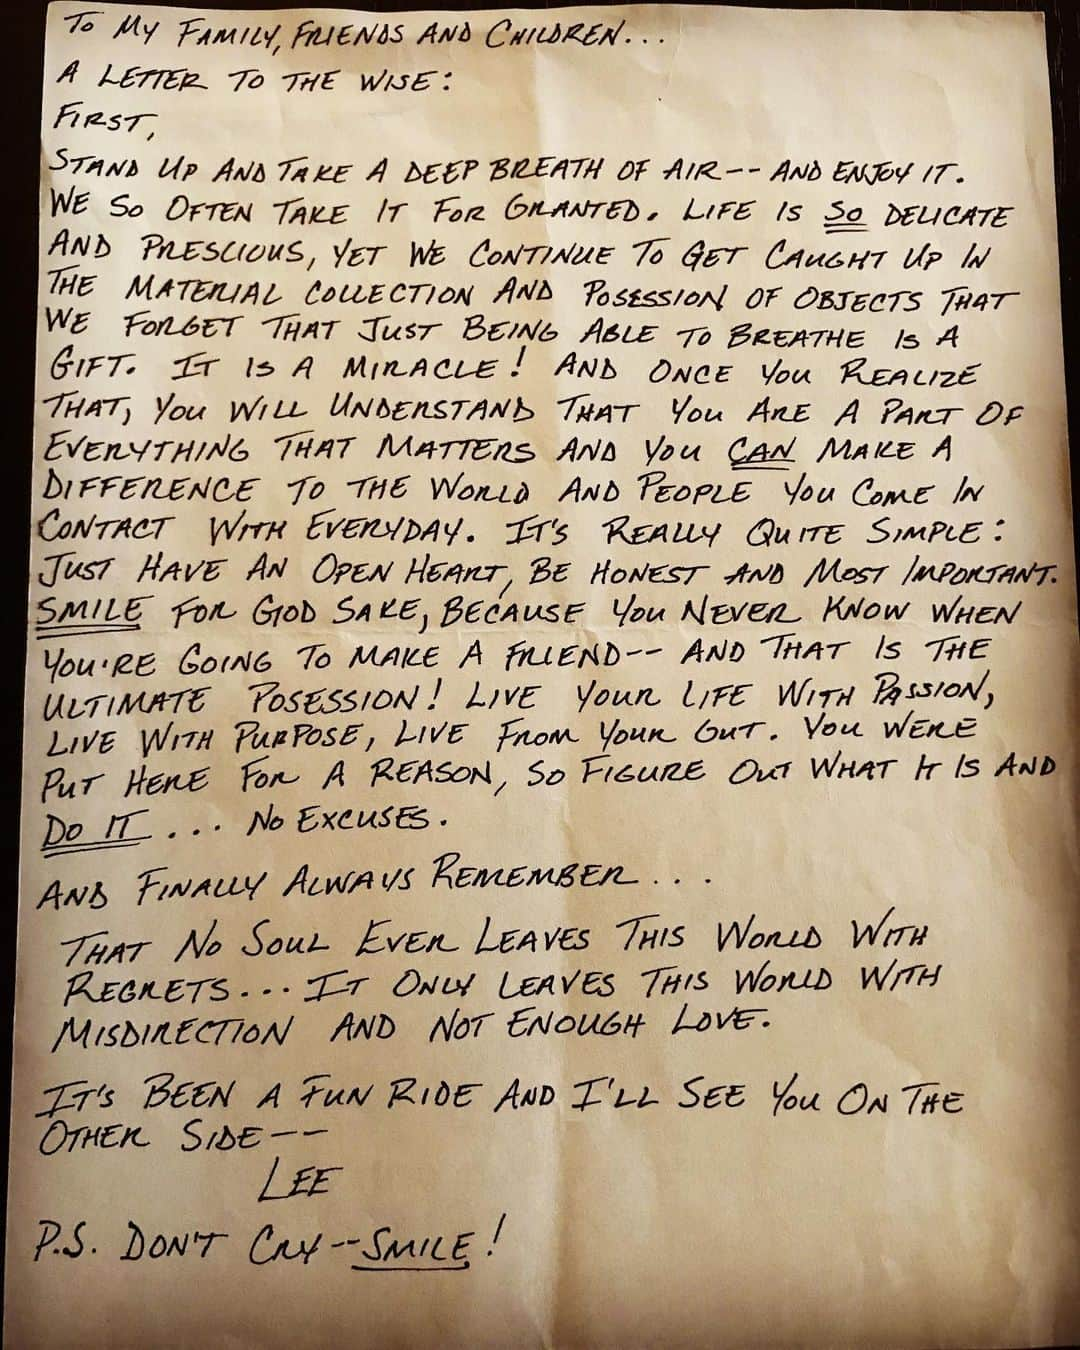 To My Family, Friends And Children...
A Letter To The Wise:
First,
Stand Up And Take A Deep Breath Of Air-- And Enjoy It.
We So Often Take It For Granted. Life Is So Delicate
And Prescious, Yet We Continue To Get Caught Up In
The Material Collection And Posession Of Objects That
We Forget That Just Being Able To Breathe Is A
Gift. It Is A Miracle! And Once You Realize
That, You Will Understand That You Are A Part Of
Everything That Matters And You Can Make A
Difference To The World And People You Come In
Contact With Everyday. It's Really Quite Simple:
Just Have An Open Heart, Be Honest And Most Important.
Smile For God Sake, Because You Never Know When
You're Going To Make A Friend-- And That Is The
Ultimate Posession! Live Your Life With Passion,
Live With Purpose, Live From Your Gut. You Were
Put Here For A Reason, So Figure Out What It Is And
Do It... No Excuses.
And Finally Always Remember...
That No Soul Ever Leaves This World With
Regrets... It Only Leaves This World With
Misdirection And Not Enough Love.
It's Been A Fun Ride And I'll See You On The
Other Side--
Lee
P.S. Don't Cry--Smile!